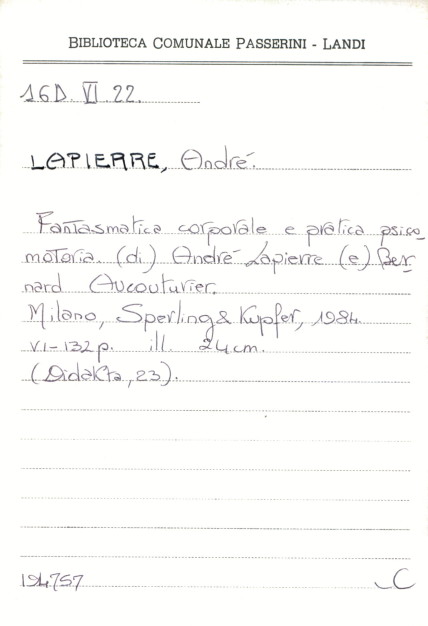 BIBLIOTECA COMUNALE PASSERINI - LANDI
16D. VI. 22.
LAPIERRE, André.
Fantasmatica corporale e pratica psico
motoria. (di) André Lapierre (e) Ber
nard Aucouturier.
Milano, Sperling & Kupfer, 1984.
VI-132 p. ill. 24 cm.
(Didakta, 23).
194757
C